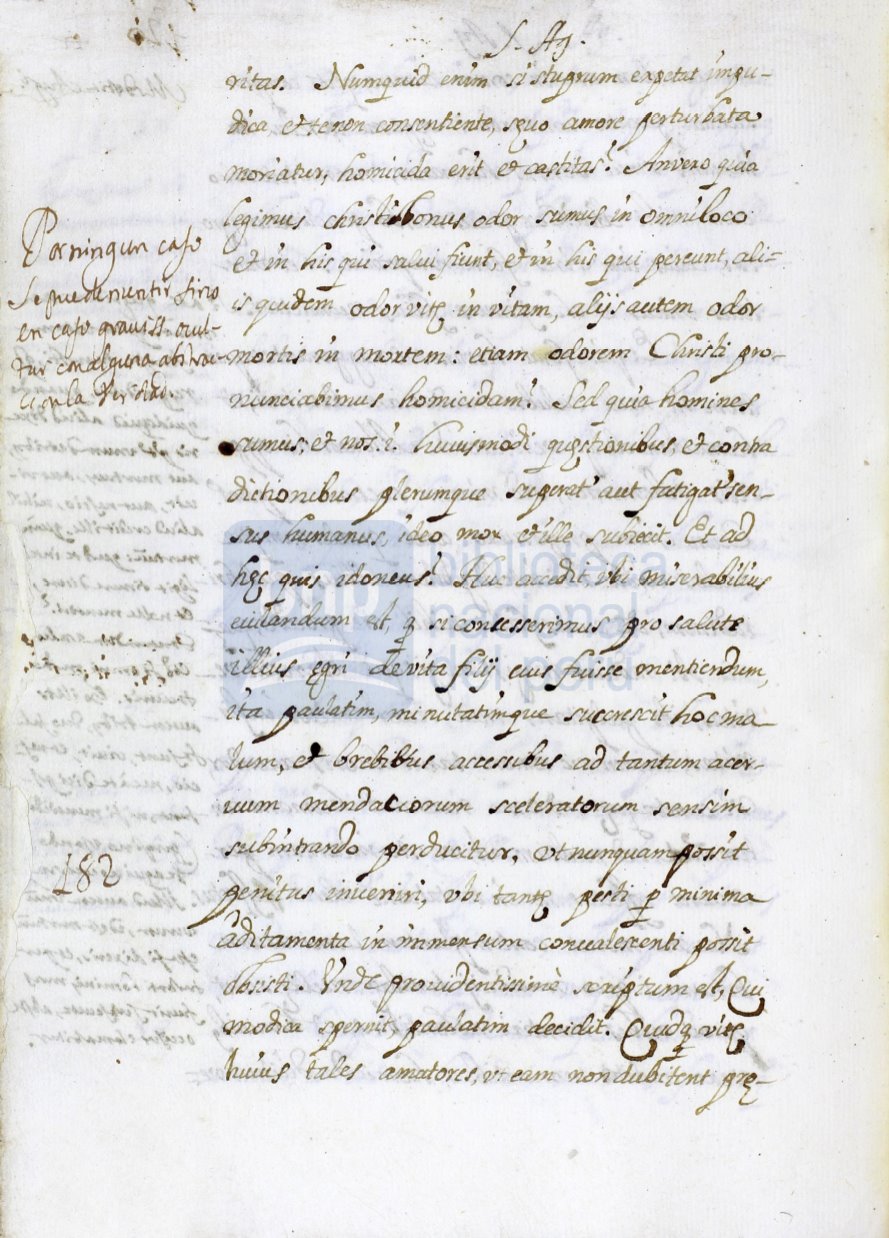 S. Ag.
ritas. Numquid enim si stuprum expetat impu-
dica, et te non consentiente, sęuo amore perturbata
moriatur, homicida erit et castitas? An vero quia
legimus christi bonus odor sumus in omni loco
et in his qui salui fiunt, et in his qui pereunt, ali-
is quidem odor vitę in vitam, alijs autem odor
mortis in mortem: etiam odorem Christi pro-
nunciabimus homicidam? Sed quia homines
sumus, et nos .i. huiusmodi quęstionibus, et contra
dictionibus plerumque superet aut fatigat sen-
sus humanus, ideo mox et ille subiecit. Et ad
hęc quis idoneus? Huc accedit, vbi miserabilius
eiulandum est, ꝙ si concesserimus pro salute
illius ęgri de vita filij eius fuisse mentiendum,
ita paulatim, minutatimque succrescit hoc ma-
lum, et brebibus accessibus ad tantum acer-
uum mendaciorum sceleratorum sensim
subintrando perducitur, vt nunquam possit
penitus inueniri, vbi tantę pesti ꝑ minima
aditamenta in immensum conualescenti possit
obsisti. Vnde prouidentissimè scriptum est, Qui
modica spernit, paulatim decidit. Quidꝙ vitę
huius tales amatores, vt eam non dubitent prę-
Por ningun caso
se puede mentir sino
en caso graviss. ocul-
tar con alguna abstrac-
cion la verdad.
182
biblioteca
nacional
del perú
bnp